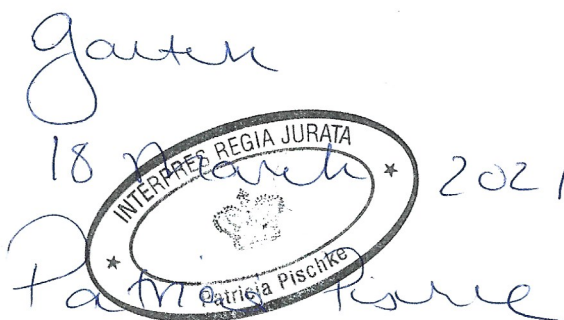 18 March 2021
INTERPRES REGIA JURATA
Patricia Pischke
Patricia Pischke